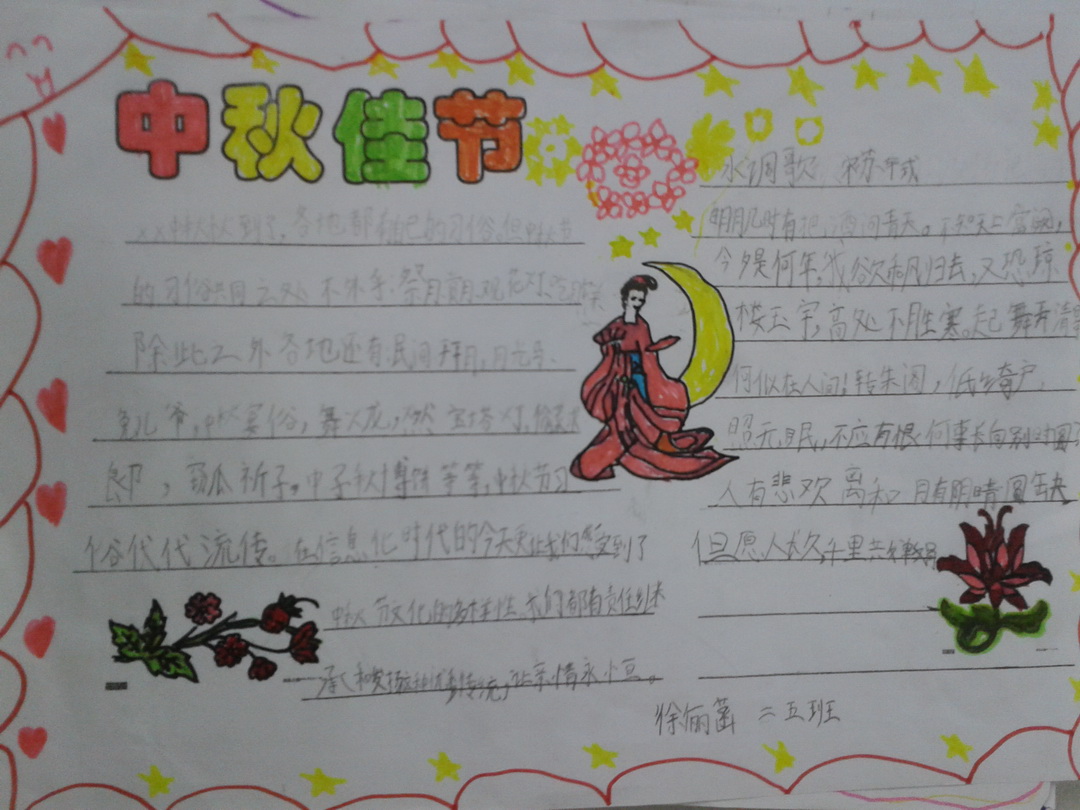 中秋佳节
中秋到了,各地都有自己的习俗,但中秋节
的习俗共同之处不外乎:祭月赏月、观花灯、
除此之外各地还有民间拜月,月光
兔儿爷,中秋宴俗,舞火龙,燃宝塔灯,
郎,窃瓜祈子。中子秋博饼等等,中秋节习
俗代代流传。在信息化时代的今天更让我们感受到了
中秋节文化的多样性,我们都有责任来
承和发扬这种优秀传统,让亲情永
水调歌 宋苏轼
明月几时有把酒问青天。不知天上宫阙,
今夕是何年,我欲乘风归去,又恐琼
楼玉宇,高处不胜寒。起舞弄清
何似在人间!转朱阁,低绮户,
照无眠,不应有恨何事长向别时圆
人有悲欢离和月有阴晴圆缺
但愿人长久,千里共
徐俪菡 二五班